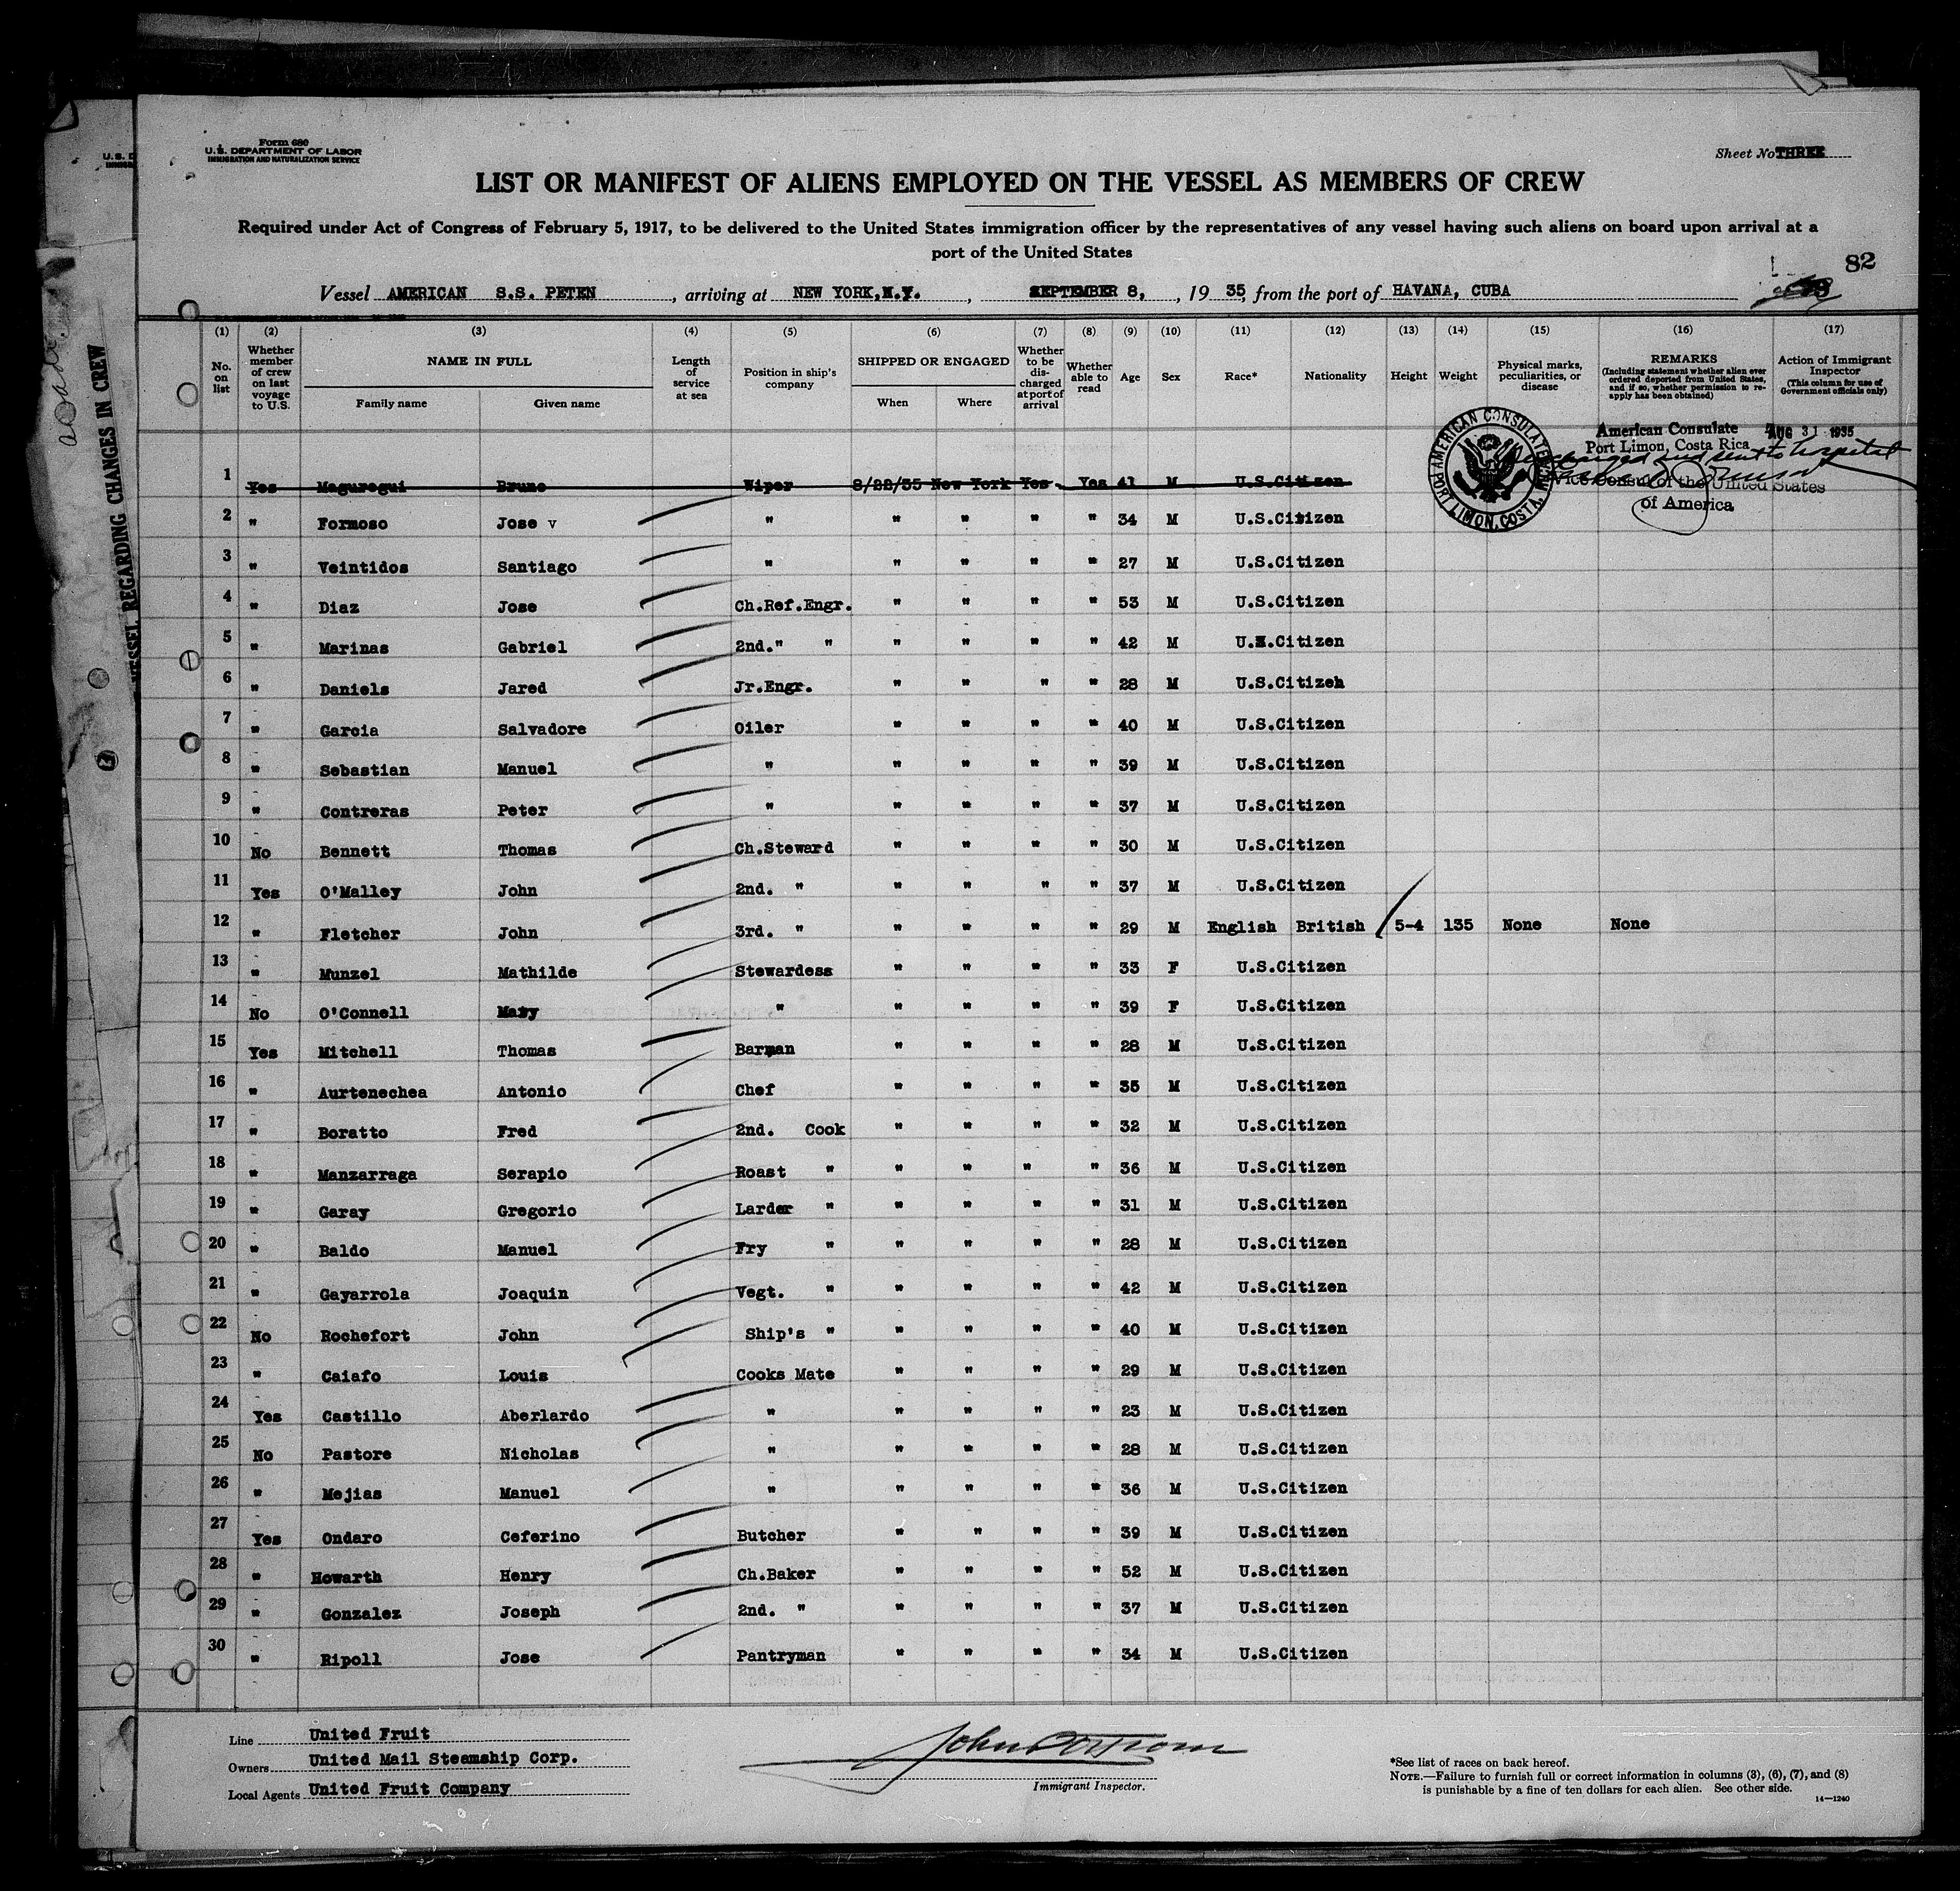 Form 680
U.S. DEPARTMENT OF LABOR
IMMIGRATION AND NATURALIZATION SERVICE
Sheet No THREE
LIST OR MANIFEST OF ALIENS EMPLOYED ON THE VESSEL AS MEMBERS OF CREW
Required under Act of Congress of February 5, 1917, to be delivered to the United States immigration officer by the representatives of any vessel having such aliens on board upon arrival at a
port of the United States
82
Vessel AMERICAN S.S. PETEN, arriving at NEW YORK,N.Y., SEPTEMBER 8, , 19 35, from the port of HAVANA, CUBA
(1) (2) (3) (4) (5) (6) (7) (8) (9) (10) (11) (12) (13) (14) (15) (16) (17)
No. on list
Whether member of crew on last voyage to U.S.
NAME IN FULL
Family name Given name
Length of service at sea
Position in ship's company
SHIPPED OR ENGAGED
When Where
Whether to be discharged at port of arrival
Whether able to read
Age
Sex
Race*
Nationality
Height
Weight
Physical marks, peculiarities, or disease
REMARKS
(Including statement whether alien ever ordered deported from United States, and if so, whether permission to reapply has been obtained)
Action of Immigrant Inspector
(This column for use of Government officials only)
AMERICAN CONSULATE
PORT LIMON, COSTA RICA
American Consulate AUG 31 1935
Port Limon, Costa Rica
and sent to hospital
Vice Consul of the United States
of America
1 Yes Maguregui Bruno Wiper 8/22/35 New York Yes Yes 41 M U.S.Citizen
2 " Formoso Jose v " " " " " 34 M U.S.Citizen
3 " Veintidos Santiago " " " " " 27 M U.S.Citizen
4 " Diaz Jose Ch.Ref.Engr. " " " " 53 M U.S.Citizen
5 " Marinas Gabriel 2nd." " " " " " 42 M U.S.Citizen
6 " Daniels Jared Jr.Engr. " " " " 28 M U.S.Citizen
7 " Garcia Salvadore Oiler " " " " 40 M U.S.Citizen
8 " Sebastian Manuel " " " " " 39 M U.S.Citizen
9 " Contreras Peter " " " " " 37 M U.S.Citizen
10 No Bennett Thomas Ch.Steward " " " " 30 M U.S.Citizen
11 Yes O'Malley John 2nd. " " " " " 37 M U.S.Citizen
12 " Fletcher John 3rd. " " " " " 29 M English British 5-4 135 None None
13 " Munzel Mathilde Stewardess " " " " 33 F U.S.Citizen
14 No O'Connell Mary " " " " " 39 F U.S.Citizen
15 Yes Mitchell Thomas Barman " " " " 28 M U.S.Citizen
16 " Aurtenechea Antonio Chef " " " " 35 M U.S.Citizen
17 " Boratto Fred 2nd. Cook " " " " 32 M U.S.Citizen
18 " Manzarraga Serapio Roast " " " " " 36 M U.S.Citizen
19 " Garay Gregorio Larder " " " " " 31 M U.S.Citizen
20 " Baldo Manuel Fry " " " " " 28 M U.S.Citizen
21 " Gayarrola Joaquin Vegt. " " " " " 42 M U.S.Citizen
22 No Rochefort John Ship's " " " " " 40 M U.S.Citizen
23 " Caiafo Louis Cooks Mate " " " " 29 M U.S.Citizen
24 Yes Castillo Aberlardo " " " " " 23 M U.S.Citizen
25 No Pastore Nicholas " " " " " 28 M U.S.Citizen
26 " Mejias Manuel " " " " " 36 M U.S.Citizen
27 Yes Ondaro Ceferino Butcher " " " " 39 M U.S.Citizen
28 " Howarth Henry Ch.Baker " " " " 52 M U.S.Citizen
29 " Gonzalez Joseph 2nd. " " " " " 37 M U.S.Citizen
30 " Ripoll Jose Pantryman " " " " 34 M U.S.Citizen
Line United Fruit
Owners United Mail Steamship Corp.
Local Agents United Fruit Company
Immigrant Inspector.
*See list of races on back hereof.
NOTE.—Failure to furnish full or correct information in columns (3), (6), (7), and (8)
is punishable by a fine of ten dollars for each alien. See other side.
14—1240
VESSEL REGARDING CHANGES IN CREW
U.S. D